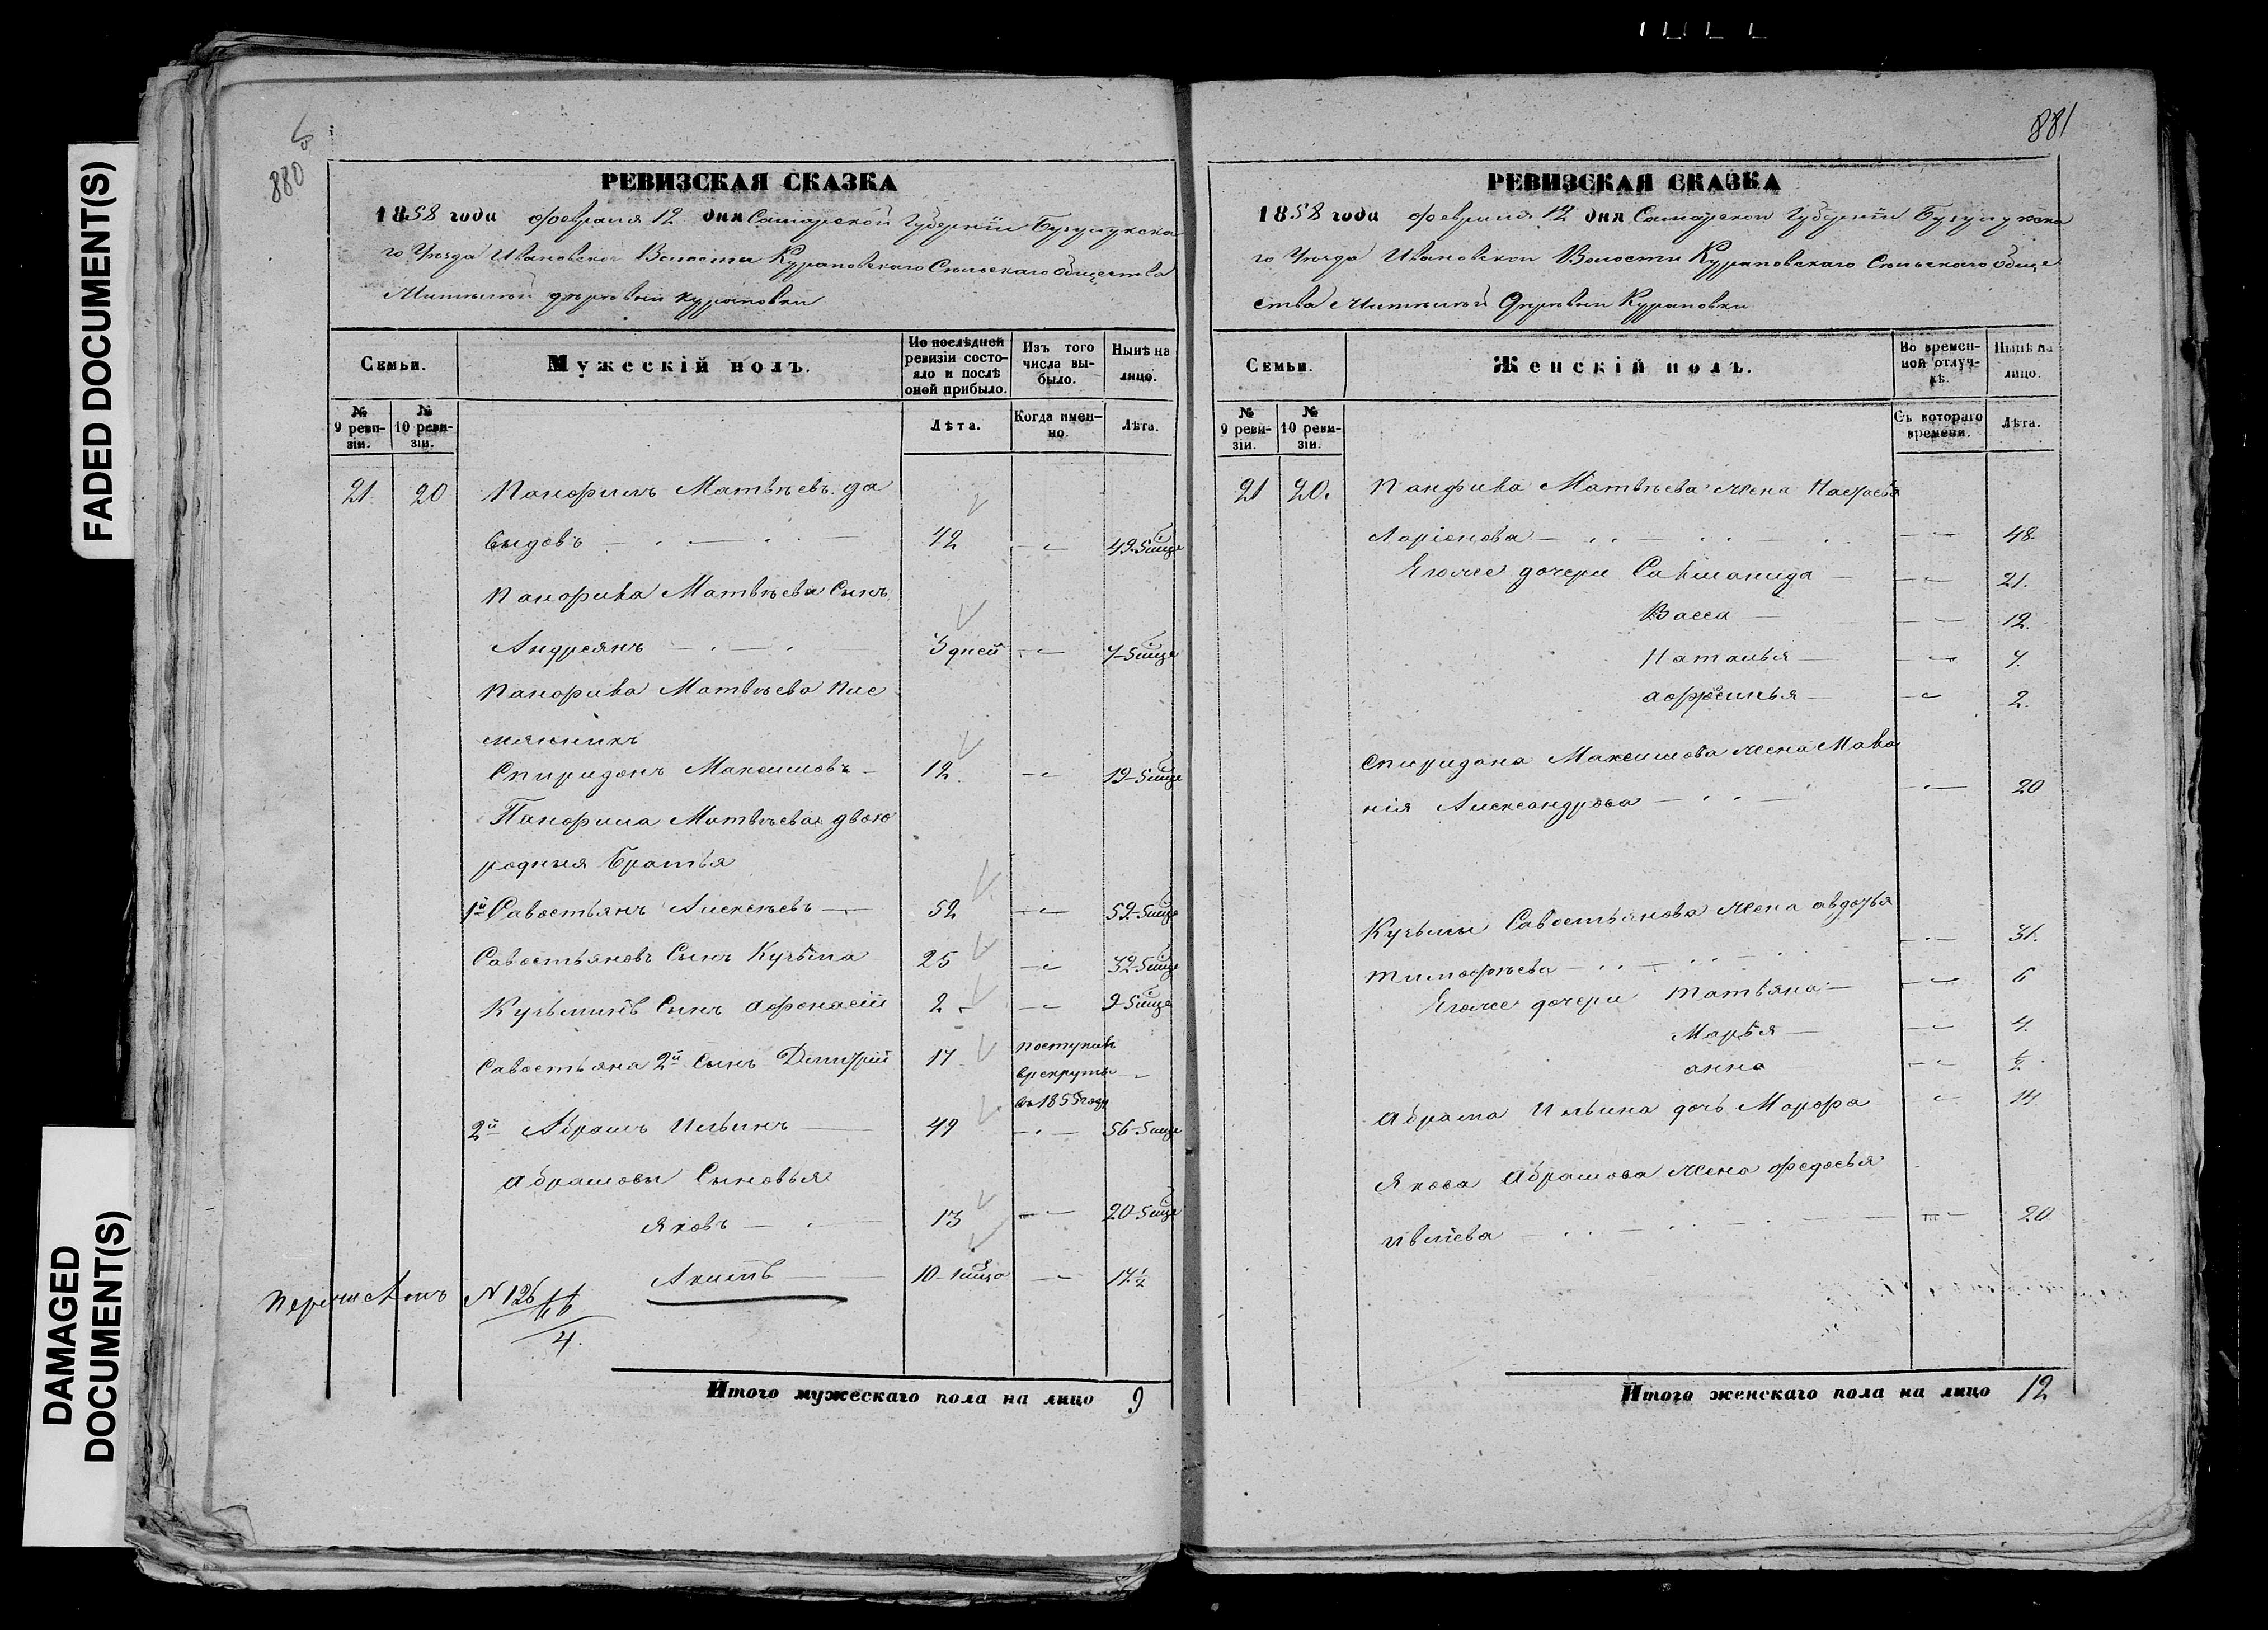 FADED DOCUMENT(S)
DAMAGED
DOCUMENT(S)
880
РЕВИЗСКАЯ СКАЗКА
1858 года февраля 12 дня Самарской Губернiи Бугурукска
го Уезда Ивановской Волости Курановскаго Сельскаго общества
деревни Курановки
Семьи.
Мужескiй полъ.
По послѣдней
ревизiи состо-
яло и послѣ
оной прибыло.
Изъ того
числа вы-
было.
Нынѣ на
лицо.
№
9 реви-
зiи.
№
10 реви-
зiи.
Лѣта.
Когда имен-
но.
Лѣта.
21. 20 Панфилъ Матвѣевъ Да
выдовъ 42 49-5 мцв
Панфила Матвѣева Сынъ
Андреянъ 3 дней 7-5 мцв
Панфила Матвѣева пле
мянникъ
Спиридонъ Максимовъ 12. 19-5 мцв
Панфила Матвѣева двою
родныя братья
1й Савостьянъ Алексѣевъ 52 59-5 мцв
Савостьяновъ Сынъ Кузьма 25 32-5 мцв
Кузьминъ Сынъ Афонасiй 2 9-5 мцв
Савостьяна 2й Сынъ Дмитрiй 17 поступилъ
в рекруты
въ 1855 году
2й Абрамъ Ильинъ 49 56-5 мцв
Абрамовы Сыновья
Яковъ 13 20-5 мцв
Акимъ 10-1 мцв 17 1/2
N 126
4.
Итого мужескаго пола на лицо 9
881
РЕВИЗСКАЯ СКАЗКА
1858 года февраля 12 дня Самарской Губернiи Бугурукска
го Уезда Ивановской Волости Курановскаго Сельскаго обще
ства деревни Курановки
Семьи.
Женскiй полъ.
Во времен-
ной отлуч-
кѣ.
Нынѣ на
лицо.
№
9 реви-
зiи.
№
10 реви-
зiи.
Съ котораго
времени.
Лѣта.
21 20. Панфила Матвѣева жена Настасья
Ларiонова 48
Егоже дочери 21.
Васса 12.
Наталья 7.
Афросинья 2.
Спиридона Максимова жена Мала
нiя Александрова 20
Кузьмы Савостьянова жена Авдотья
Тимофѣева 31.
Егоже дочери Татьяна 6
Марья 4.
Анна 1/2.
Абрама Ильина дочь Марфа 14.
Якова Абрамова жена Федосья
Ивлiева 20
Итого женскаго пола на лицо 12